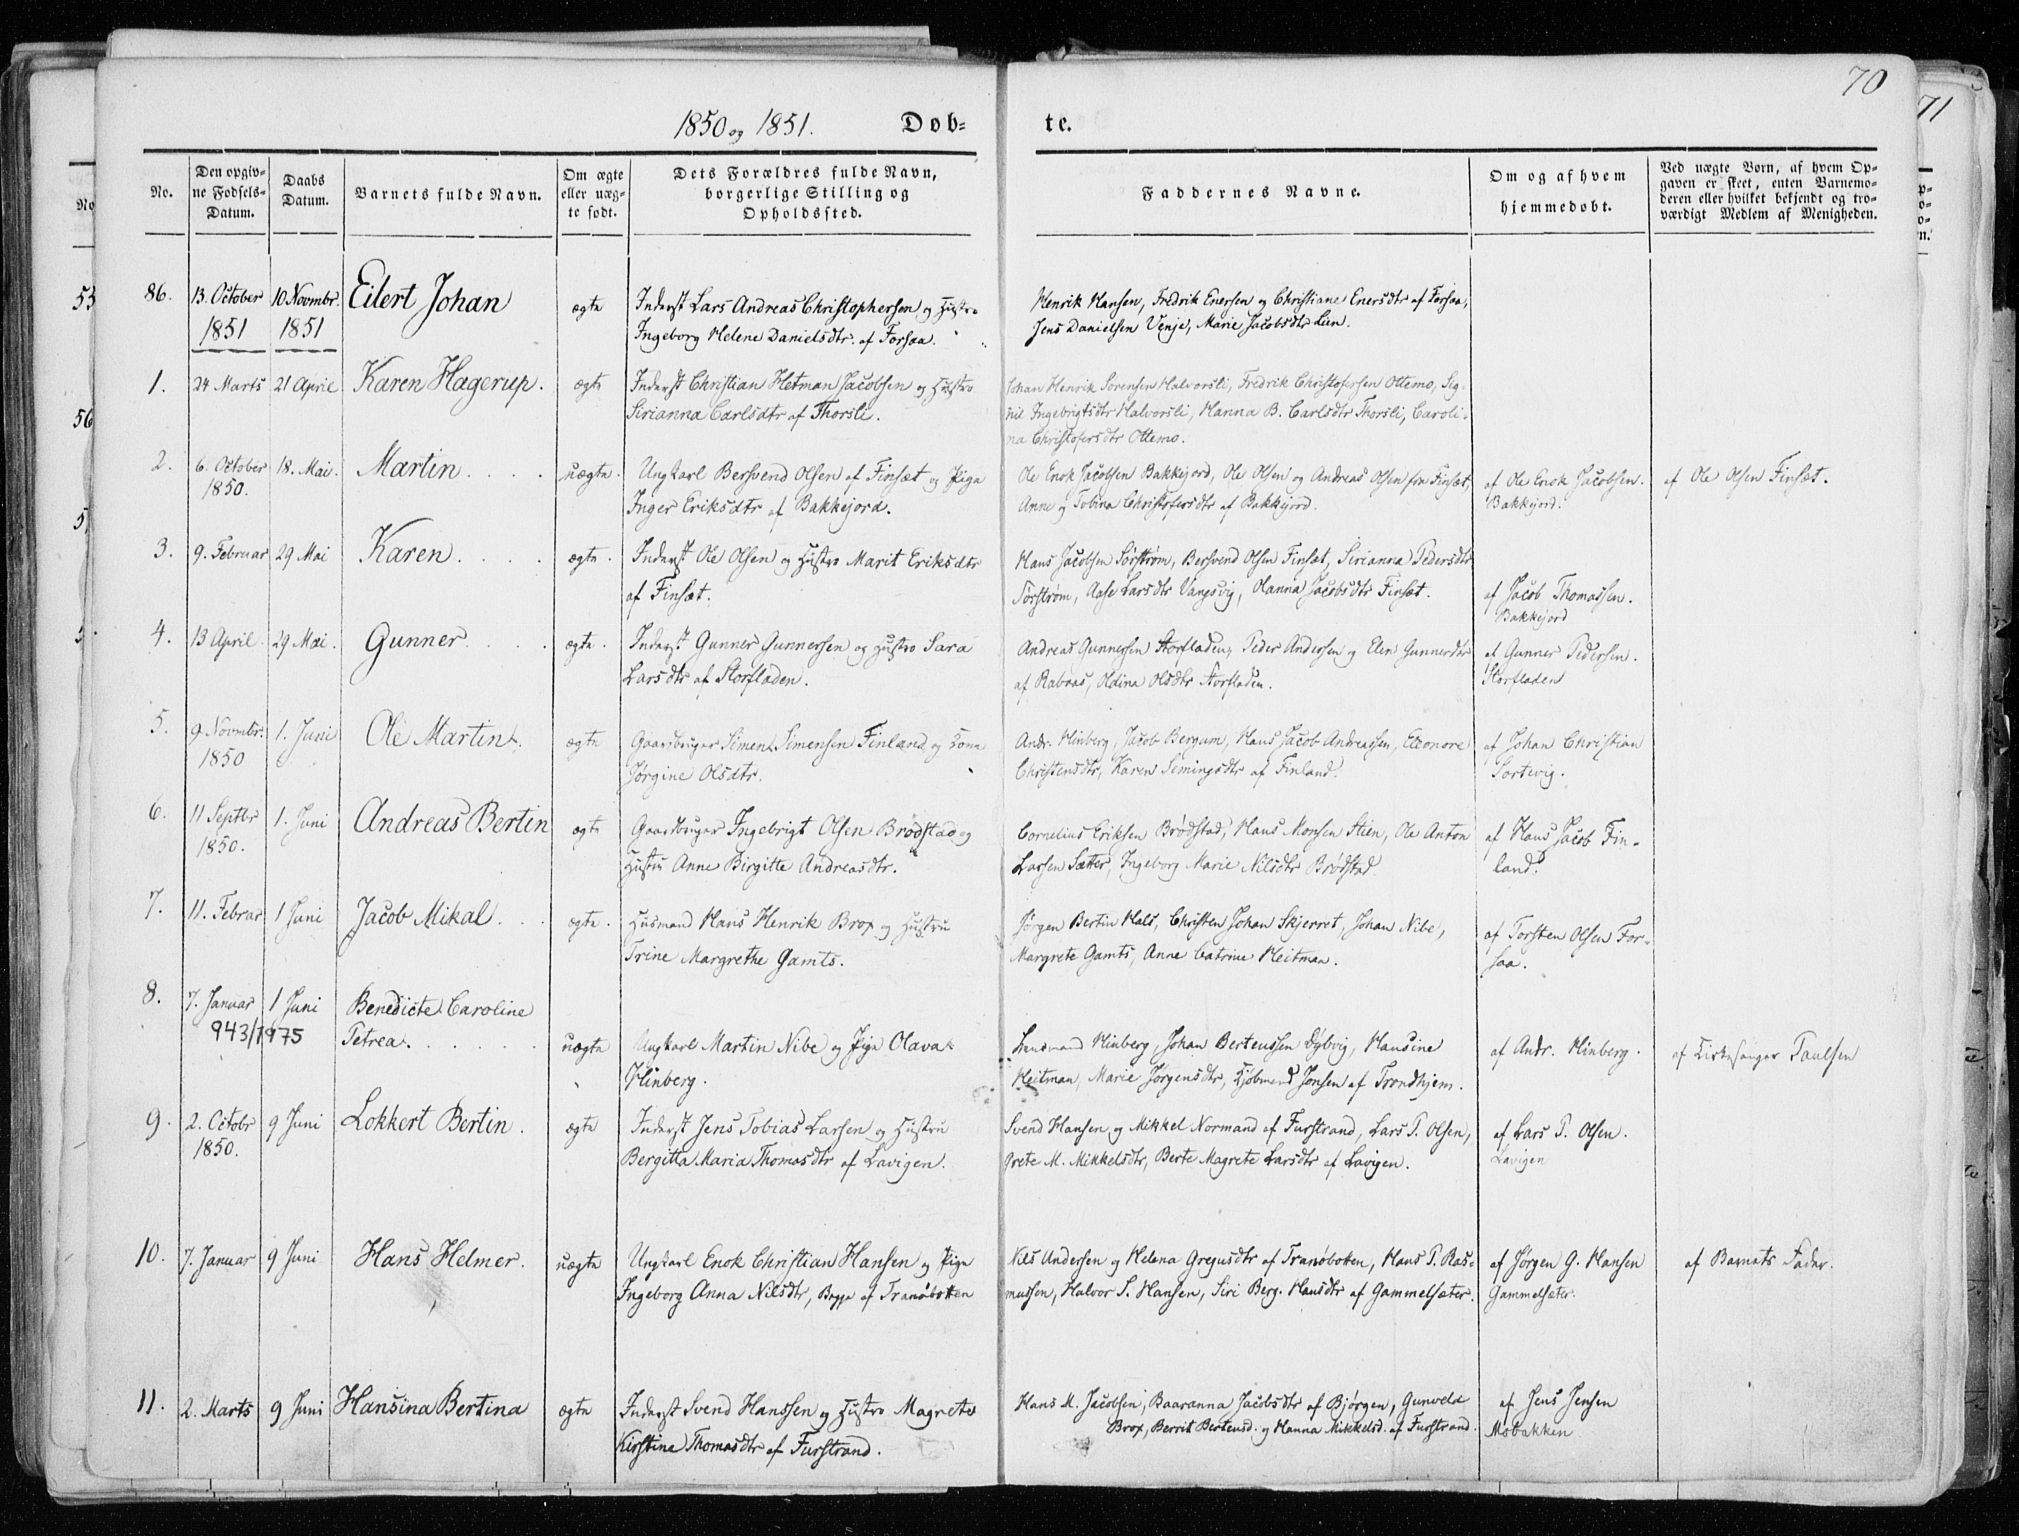 70
71
1850 og 1851. Døb- te.
No.
Den opgiv-
ne Fødsels-
Datum.
Daabs
Datum.
Barnets fulde Navn.
Om ægte
eller uæg-
te født.
Dets Forældres fulde Navn,
borgerlige Stilling og
Opholdssted.
Faddernes Navne.
Om og af hvem
hjemmedøbt.
Ved uægte Børn, af hvem Op-
gaven er skeet, enten Barnemo-
deren eller hvilket bekjendt og tro-
værdigt Medlem af Menigheden.
86. 13. October 10 Novmbr. Eilert Johan ægte Inderst Lars Andreas Christophersen og Hustro Henrik Hansen, Fredrik Enersen og Christiane Enersdtr af Forsaa,
1851 1851 Ingeborg Helene Danielsdtr. af Forsaa. Jens Danielsen Vinje, Marie Jacobsdtr Lien.
1. 24 Marts 21 April Karen Hagerup. ægte Inderst Christian Hetman Jacobsen og Hustro Johan Henrik Sørensen Halvorsli, Fredrik Christofersen Ottemo, Sig-
Sirianna Carlsdtr af Thorsli. nil Ingebrigtsdtr Halvorsli, Hanna B. Carlsdtr Thorsli, Caroli-
na Christofersdtr Ottemo.
2. 6. October 18. Mai. Martin. uægte. Ungkarl Bersvend Olsen af Finsæt og Pige Ole Enok Jacobsen Bakkejord, Ole Olsen og Andreas Olsen fra Finsæt, af Ole Enok Jacobsen. af Ole Olsen Finsæt.
1850. Inger Eriksdtr af Bakkejord. Anne og Tobina Christofersdtr af Bakkejord. Bakkejord.
3. 9. Februar 29 Mai Karen. ægte. Inderst Ole Olsen og Hustro Marit Eriksdtr Hans Jacobsen Sørstrøm, Bersvend Olsen Finsæt, Sirianna Pedersdtr
af Finsæt. Sørstrøm, Aase Larsdtr Vangsvig, Hanna Jacobsdtr Finsæt. af Jacob Thomassen.
Bakkejord
4. 13 April. 29 Mai. Gunner. ægte. Inderst Gunner Gunnersen og Hustro Sara Andreas Gunnersen Storfladen, Peder Andersen og Elen Gunnersdtr af Gunner Pedersen.
Larsdtr af Storfladen. af Rabaas, Oldina Olsdtr Storfladen. Storfladen
5. 9 Novmbr. 1. Juni Ole Martin. ægte Gaardbruger Simen Simensen Finland og Kone Andr. Hinberg, Jacob Bergum, Hans Jacob Andreassen, Eleonore af Johan Christian
1850 Jørgine Olsdtr. Christensdtr, Karen Semingsdtr af Finland. Sortvig.
6. 11 Septbr 1. Juni Andreas Bertin ægte Gaardbruger Ingebrigt Olsen Brødstad og Cornelius Eriksen Brødstad, Hans Monsen Stien, Ole Anton af Hans Jacob Fin-
1850. Hustru Anne Birgitte Andreasdtr. Larsen Sætter, Ingeborg Marie Nilsdtr Brødstad land.
7. 11. Februar 1 Juni Jacob Mikal. ægte. Husmand Hans Henrik Brox og Hustru Jørgen Bertin Hals, Christen Johan Skjerret, Johan Nibe, af Torsten Olsen For-
Trine Margrethe Gamts. Margrete Gamts, Anne Catrine Heitman. saa.
8. 7. Januar 1 Juni Benedicte Caroline
943/1975 Petrea. uægte Ungkarl Martin Nibe og Pige Olava Lensmand Hinberg, Johan Berteussen Dybvig, Hansine af Andr. Hinberg. af Kirkesanger Paulsen
Hinberg. Heitman, Marie Jørgensdtr, Kjøbmand Jonsen af Trondhjem.
9. 2. Octobr 9 Juni Lokkert Bertin. ægte Inderst Jens Tobias Larsen og Hustru Svend Hansen og Mikkel Normand af Furstrand, Lars P. Olsen, af Lars P. Olsen.
1850. Bergitta Maria Thomasdtr af Lavigen. Grete M. Mikkelsdtr, Berte Magrete Larsdtr af Lavigen. Lavigen
10. 7. Januar 9 Juni Hans Helmer. uægte Ungkarl Enok Christian Hansen og Pige Nils Andersen og Helena Gregusdtr af Tranøbotten, Hans P. Ras- af Jørgen G. Hansen af Barnets Fader.
Ingeborg Anna Nilsdtr, Begge af Tranøbotten mussen, Halvor S. Hansen, Siri Berg. Hansdtr af Gammelsæter. Gammelsæter.
11. 2. Marts 9 Juni Hansina Bertina ægte Inderst Svend Hanssen og Hustro Magrete Hans M. Jacobsen, Baaranna Jacobsdtr af Bjørgen, Gunveld af Jens Jensen
Kirstine Thomasdtr af Furstrand. Brox, Berrit Bertensd. og Hanna Mikkelsd. af Furstrand. Mobakken